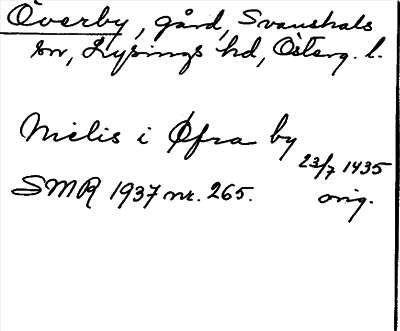 Överby, gård, Svanshals
sn, Lysings hd, Österg. l.
Nielis i Øfra by
23/7 1435
SMR 1937 nr. 265. orig.